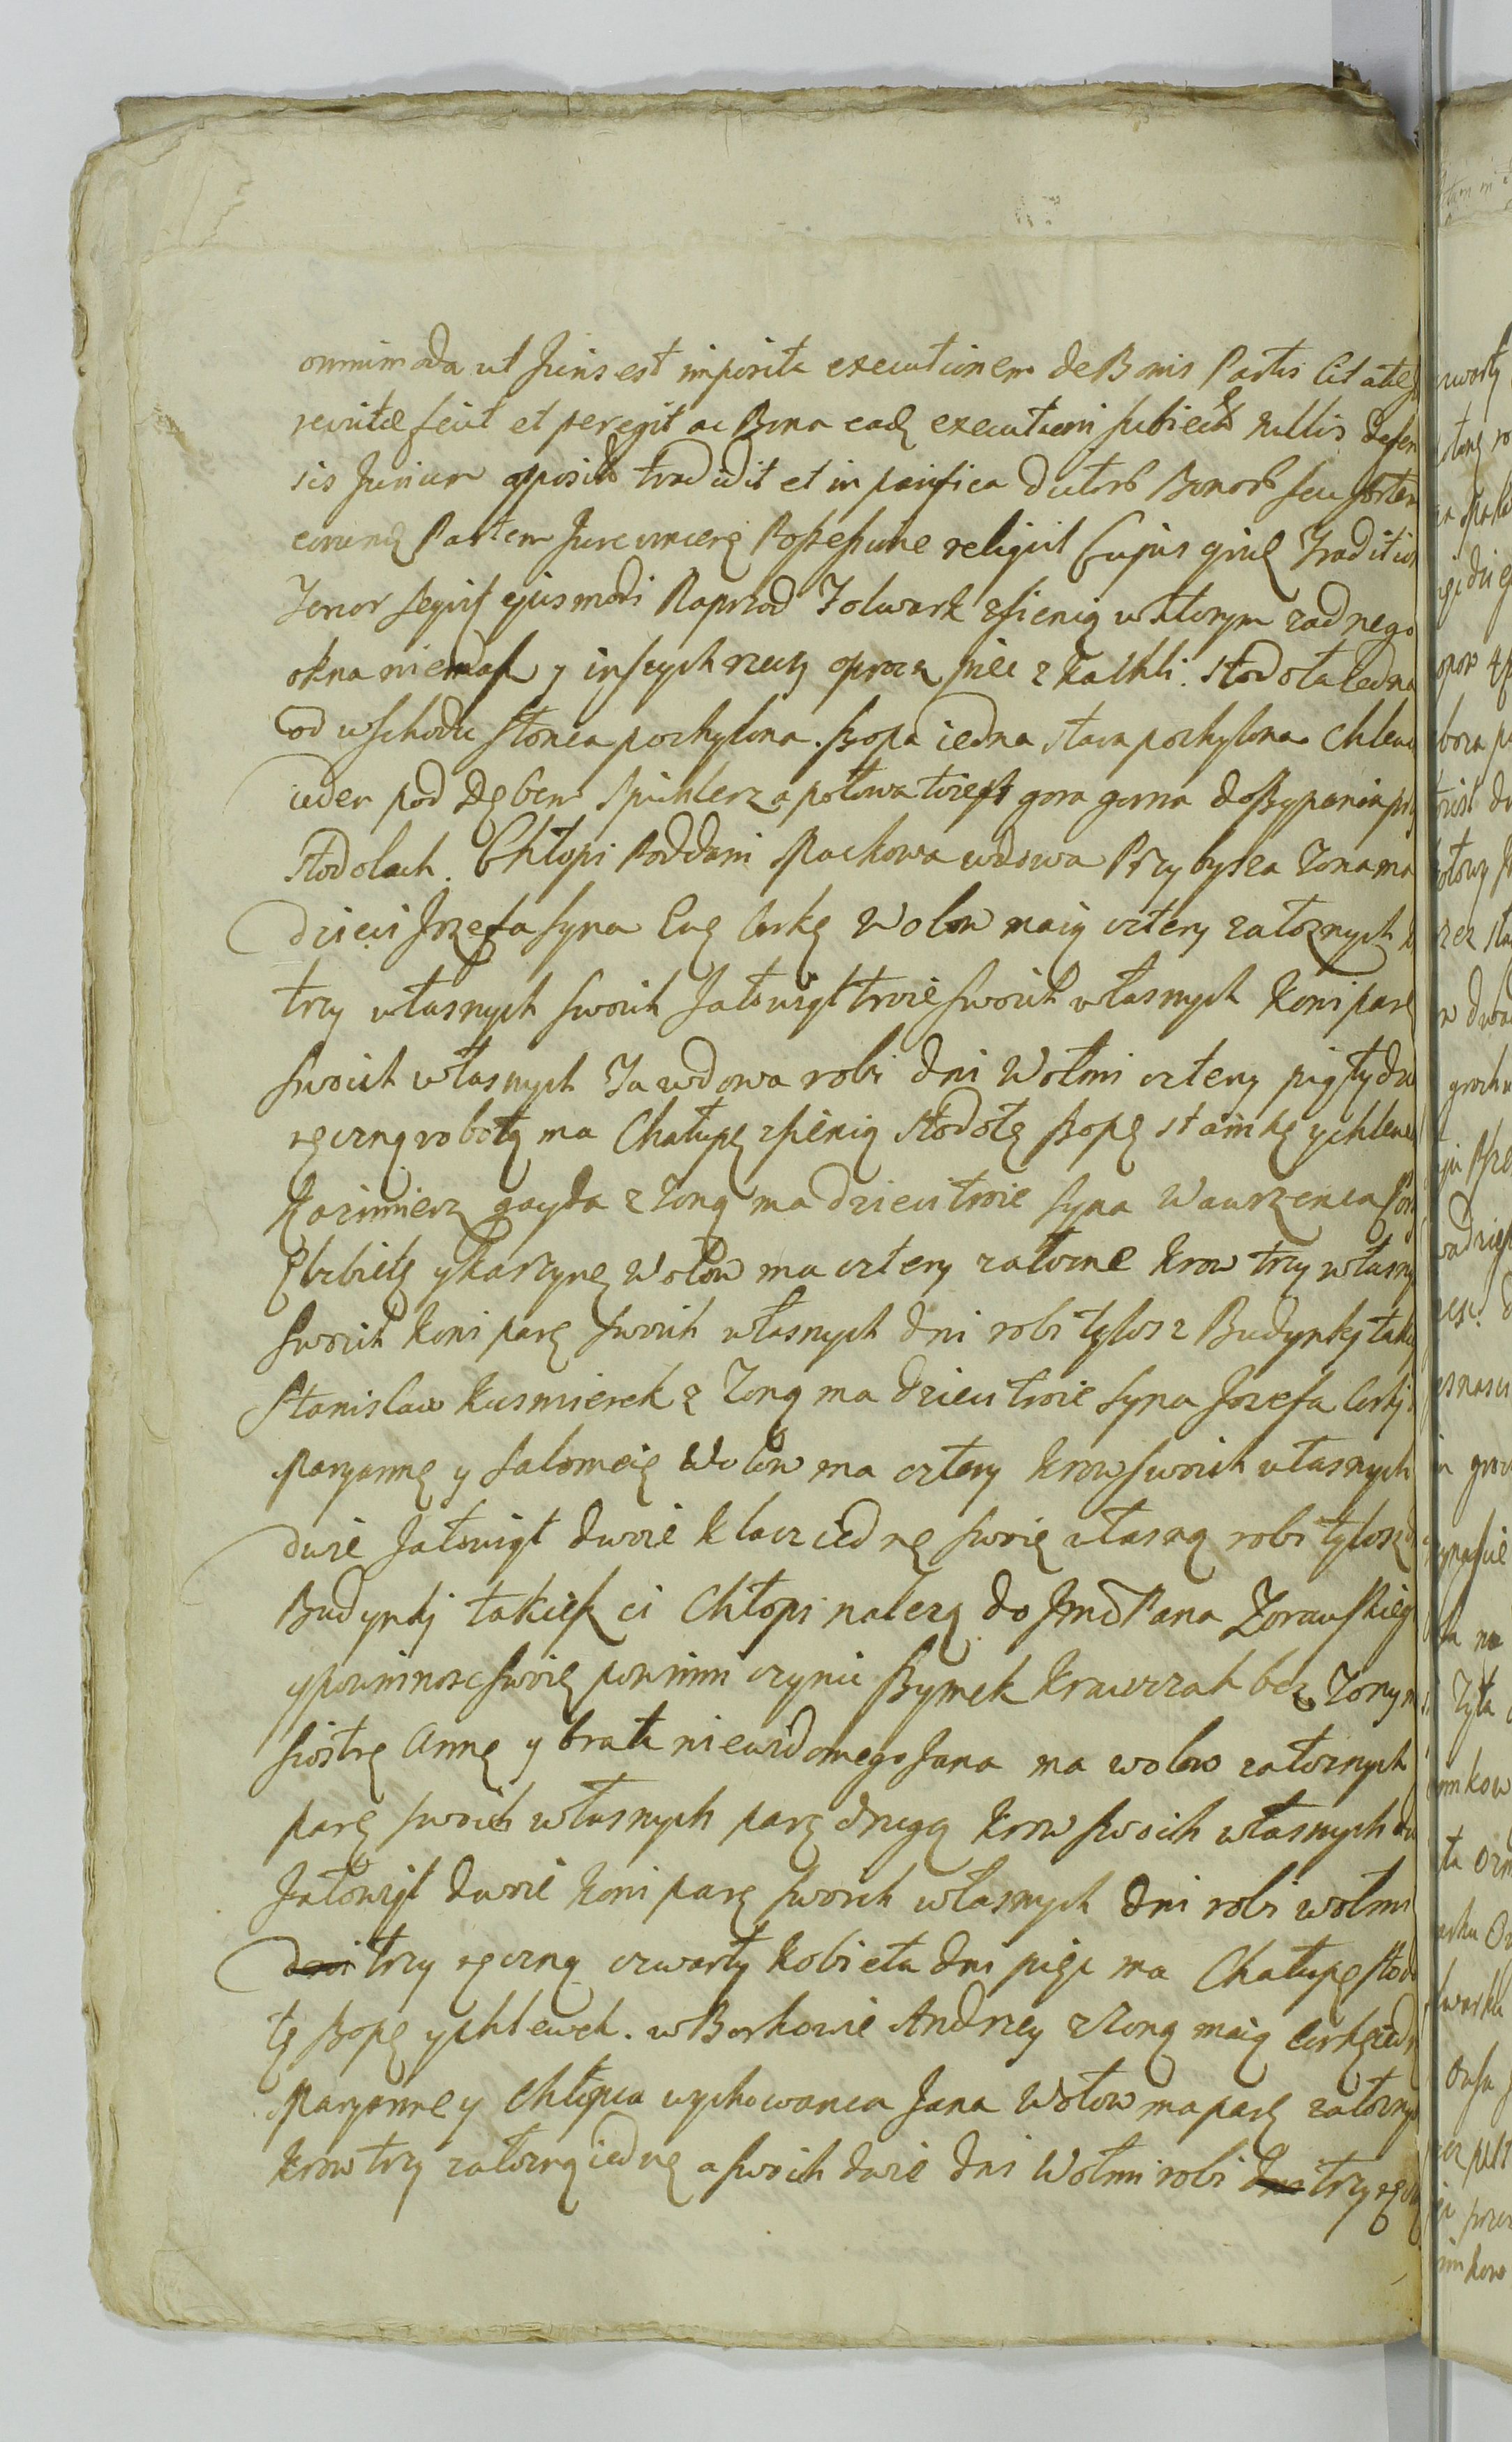 omnimoda ut Juris est imposita executionem de Bonis Partis Citatae
recività fecit et peregit ac Bona eadem executioni subiecta nullis defen
sis Jurium opositis tradidit et in pacifica dictorum Bonorum seu sortem
eorundem Partem Jure vincere Possessione reliquit Cujus quidem Traditionis
Tenor sequitur ejusmodi Naprzod Folwark z sienią w ktorym zadnego
okna niemasz y inszych rzeczy oprocz piec z kachli. Stodoła iedna
od wschodu słonca pochylona. szopa iedna stara pochylona Chlewik
ieden pod Dębem Spichlerz a połowa tdziesz gora gorna do sypania przy
stodolach. Chłopi Poddani Stachowa wdowa Przybysza Zona ma
dzieci Jozefa syna Ewę Corkę Wolow maią cztery załoznych
trzy własnych swoich Jałowiąt troie swoich własnych Koni parę
swoich własnych Ta wdowa robi dni Wołmi cztery piąty
ręczną robotą ma Chałupę z sienią stodołę szopę stainkę y chlewek
Kazimierz gayda z Zoną ma dzieci troie syna Wawrzenca
Elzbietę y Kaszynę Wołow ma cztery załozne Krow trzy własnych
swoich Koni parę swoich własnych dni robi tylosz Budynki takie
Stanislaw Kusmierek z Zoną ma dzieci troie syna Jozefa Corki
Maryannę y Salomeię Wołow ma cztery Krow swoich własnych
dwie Jałowiąt dwoie klacz iednę swoię własną robi tylosz
Budynki takiesz ci Chłopi nalezą do Jmci Pana Zorawskiego
y powinnosc swoię powinni czynic Szymek Krawczak bez Zony
siostrę Annę y brata niewidomego Jana ma wolow załoznych
parę swoich własnych parę drugą Krow swoich własnych
Jałowiąt dwoie Koni parę swoich własnych dni robi wołmi
dni trzy ręczną czwarty Kobieta dni pięc ma Chałupę stodo
łę szopę y chlewek. w Borkowie Andrzey z Zoną maią Corkę iednę
Maryannę y Chłopca wychowanca Jana Wołow ma parę załoznych
Krow trzy załozną iednę a swoich dwie dni Wołmi robi dni trzy